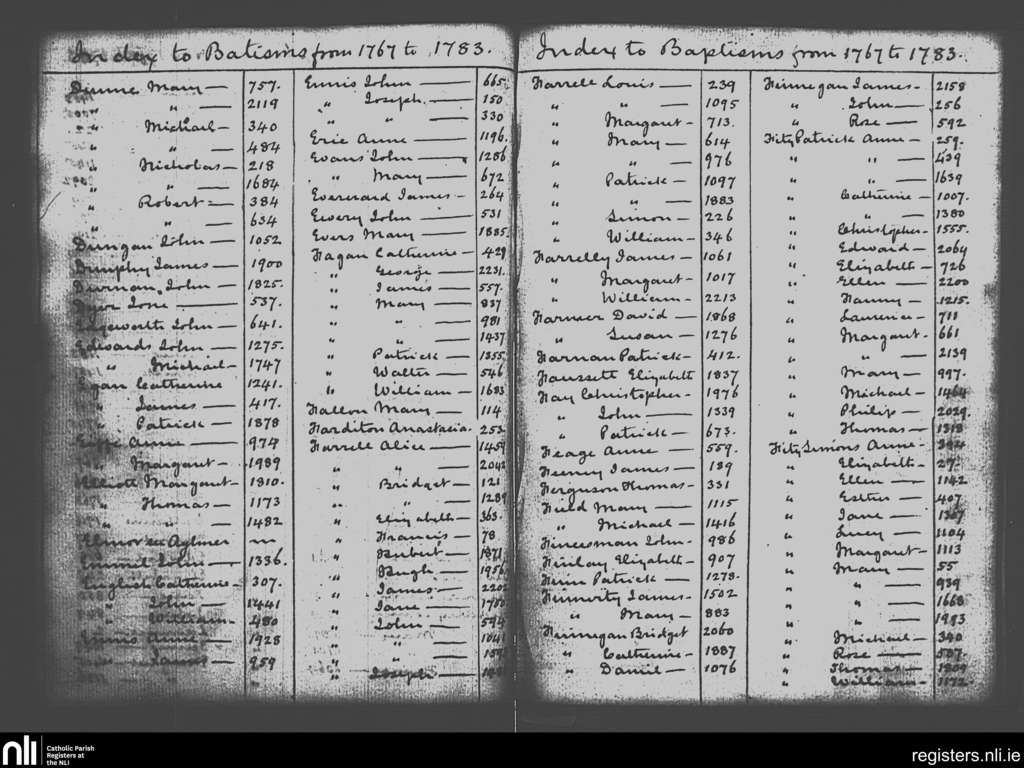 Index to Batisms from 1767 to 1783.
Dunne Mary — 757.
" " — 2119
" Michael — 340
" " — 484
" Nicholas — 218
" " — 1684
" Robert — 384
" " — 634
Dungan John — 1052
Dunphy James — 1900
Durnan, John — 1825.
Dyer Jane — 537.
Edgeworth John — 641.
Edwards John — 1275.
" Michael — 1747
Egan Catherine 1241.
" James — 417.
" Patrick — 1878
Anne — 974
" Margaret — 1989
Elliott Margaret — 1810.
" Thomas — 1173
" " — 1482
Elmor see Aylmer
Emmil John — 1336.
English Catherine — 307.
" John — 1441
" William — 480
Ennis Anne — 1928
" James — 959
Ennis John — 665.
" Joseph. — 150
" " — 330
Eric Anne — 1196.
Evans John — 1286
" Mary — 672
Evererard James — 264
Ewery John — 531
Evers Mary — 1885.
Fagan Catherine — 429
" George — 2231.
" James — 557.
" Mary — 837
" " — 981
" " — 1437
" Patrick — 1355.
" Walter — 546
" William — 1683
Fallon Mary — 114
Farditon Anastacia. 253
Farrell Alice — 1459
" " — 2042
" Bridget — 121
" " — 1289
" Elizabeth — 363.
" Francis — 78
" Hubert — 1871
" Hugh — 1956
" James — 2202
" Jane — 1780
" John — 594
" " — 1041
" " —
" Joseph —
Index to Baptisms from 1767 to 1783.
Farrell Louis — 239
" " — 1095
" Margaret — 713.
" Mary — 614
" " — 976
" Patrick — 1097
" " — 1883
" Simon — 226
" William — 346
Farrelly James — 1061
" Margaret — 1017
" William — 2213
Farmer David — 1868
" Susan — 1276
Farnan Patrick — 412.
Faussett Elizabeth 1837
Fay Christopher — 1976
" John — 1339
" Patrick — 673.
Feage Anne — 559.
Feeney James — 189
Ferguson Thomas — 331
Field Mary — 1115
" Michael — 1416
Fineesman John — 986
Finlay Elizabeth — 907
Finn Patrick — 1273.
Finnerty James — 1502
" Mary — 883
Finnegan Bridget 2060
" Catherine — 1887
" Daniel — 1076
Finnegan James — 2158
" John — 256
" Rose — 592
FitzPatrick Anne — 259.
" " — 439
" " — 1639
" Catherine — 1007.
" " — 1380
" Christopher — 1555.
" Edward — 2064
" Elizabeth — 726
" Ellen — 2200
" Fanny — 1215.
" Laurence — 711
" Margaret — 661
" " — 2139
" Mary — 997.
" Michael — 1464
" Philip — 2029.
" Thomas — 1318
FitzSimons Anne — 394
" Elizabeth — 27.
" Ellen — 1142
" Esther — 407
" Jane — 1367
" Lucy — 1104
" Margaret — 1113
" Mary — 55
" " — 939
" " — 1668
" " — 1983
" Michael — 340
" Rose — 587.
" Thomas — 1809
" William — 1172.
nli
Catholic Parish
Registers at
the NLI
registers.nli.ie